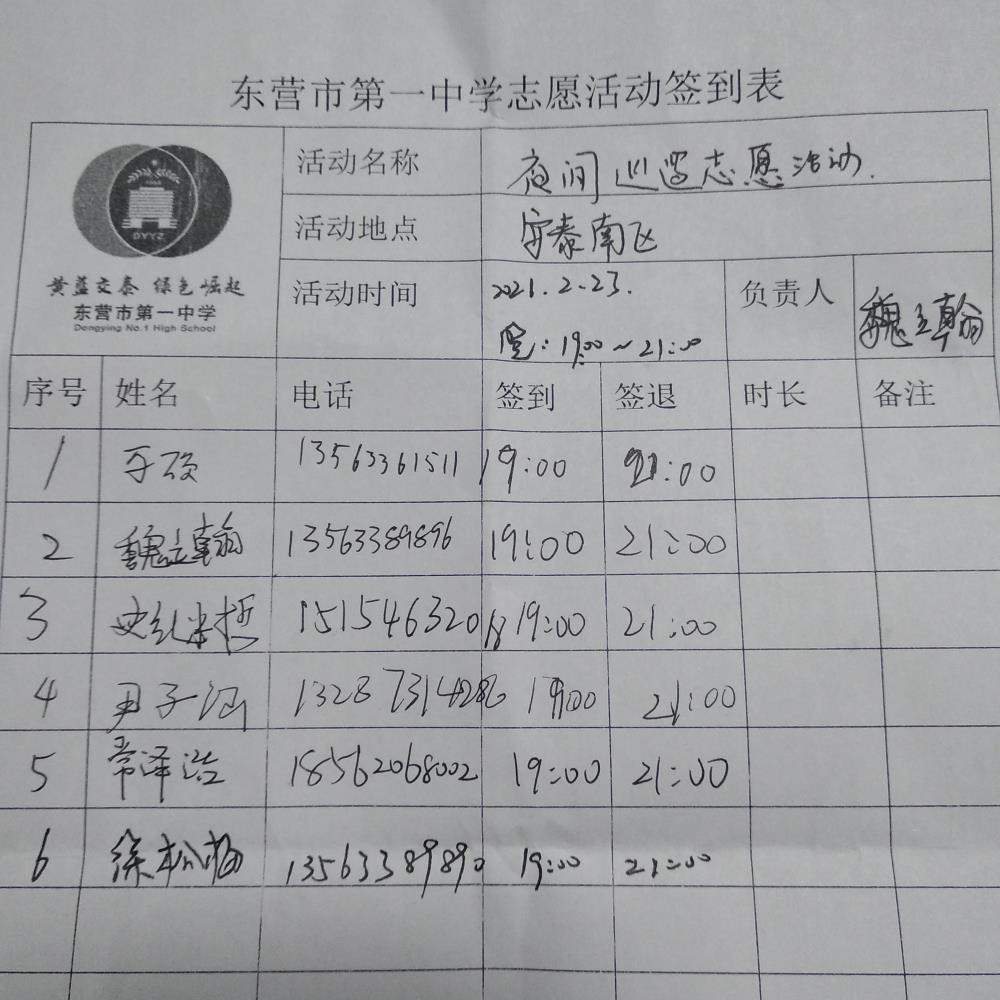 东营市第一中学志愿活动签到表
DYYZ
黄蓝交泰 绿色崛起
东营市第一中学
Dongying No.1 High School
活动名称 夜间巡逻志愿活动.
活动地点 安泰南区
活动时间 2021.2.23. 19:00~21:00
负责人 魏立翰
序号 姓名 电话 签到 签退 时长 备注
1 13563361511 19:00 21:00
2 魏立翰 13563389896 19:00 21:00
3 19:00 21:00
4 尹子涵 19:00 21:00
5 常泽浩 18562068002 19:00 21:00
6 徐松梅 13563389890 19:00 21:00